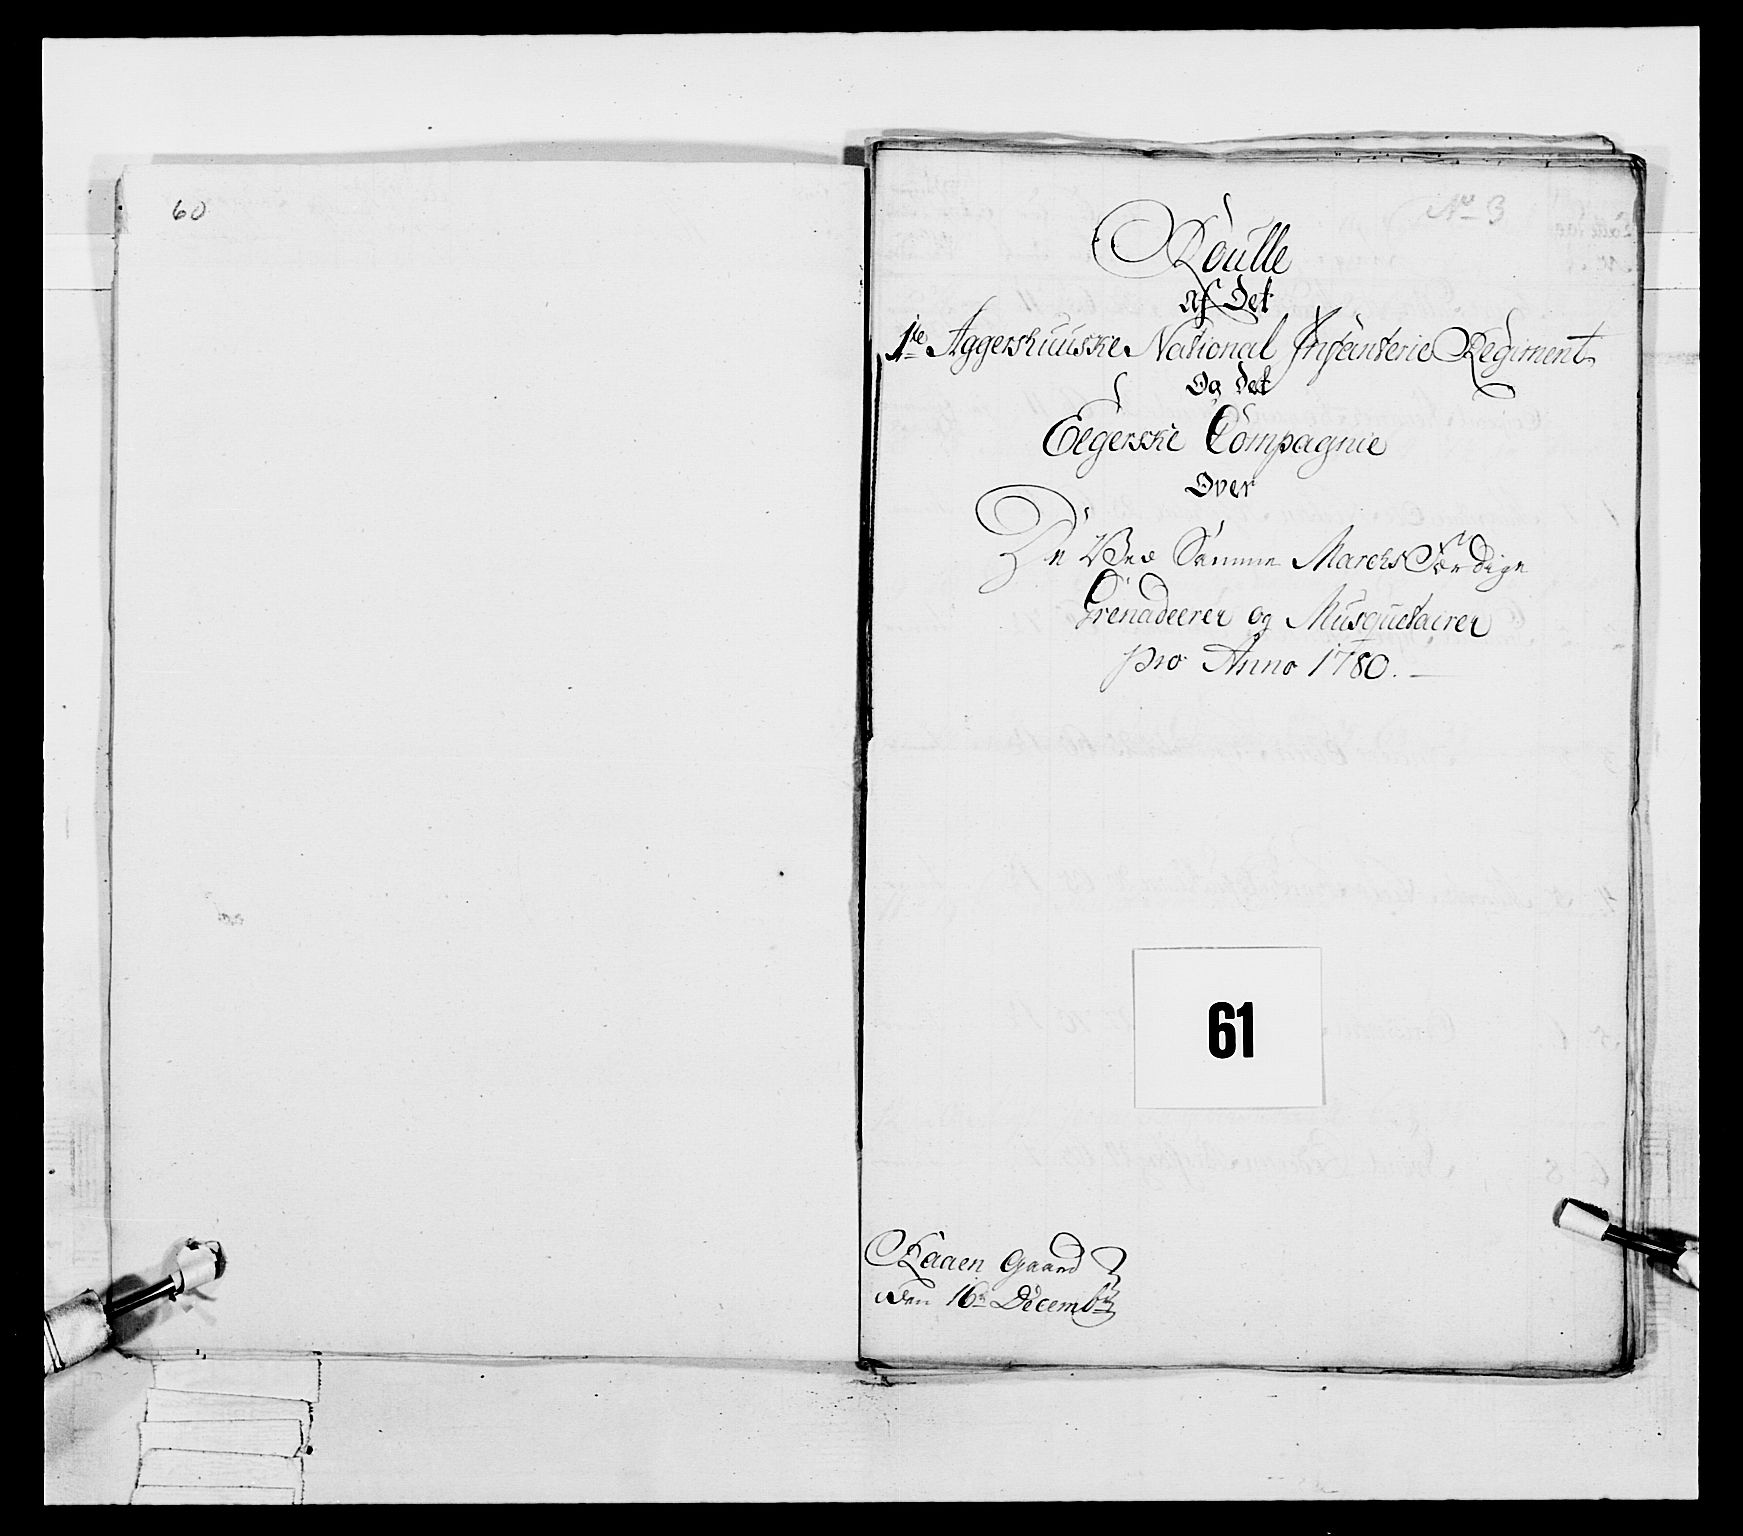 60
No 3
Roulle
af Det
1te Aggershuuske National Infanterie Regiment
Og det
Eegerske Compagnie
Over
De Ved Samme MarchsFærdige
Grenadeerer og Musquetairer
pro Anno 1780.
61
Kaaen Gaard
den 16de Decembr